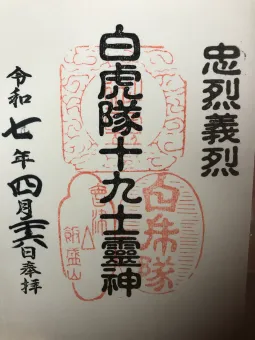 忠烈義烈
白虎隊十九士霊神
令和七年四月二十六日奉拝
白虎隊
會津
飯盛山